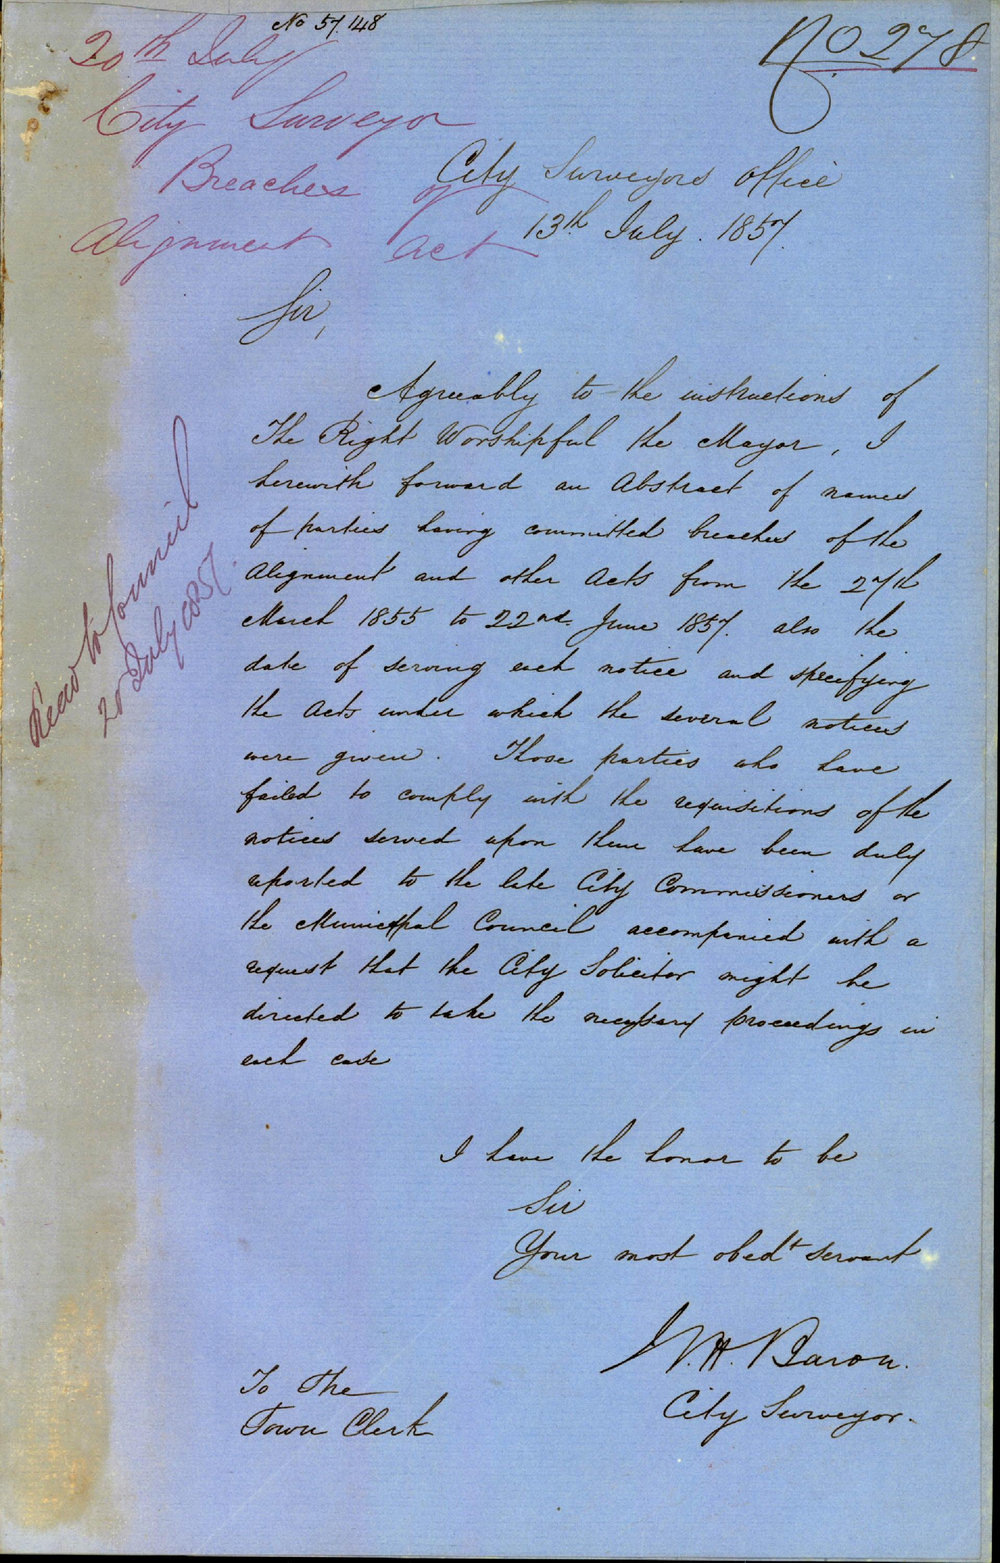 No 57.148
No 278
20th July
City Surveyor
Breaches of
Alignment Act
City Surveyors Office
13th July. 1857.
Sir,
Agreeably to the instructions of
The Right Worshipful the Mayor, I
herewith forward an Abstract of names
of parties having committed breaches of the
Alignment and other Acts from the 27th
March 1855 to 22nd. June 1857. also the
date of serving each notice and specifying
the Acts under which the several notices
were given. Those parties who have
failed to comply with the requisitions of the
notices served upon them have been duly
reported to the late City Commissioners or
the Municipal Council accompanied with a
request that the City Solicitor might be
directed to take the necessary proceedings in
each case
Read to Council
20 July 1857.
I have the honor to be
Sir
Your most obedt servant
W.H. Baron.
City Surveyor.
To the
Town Clerk